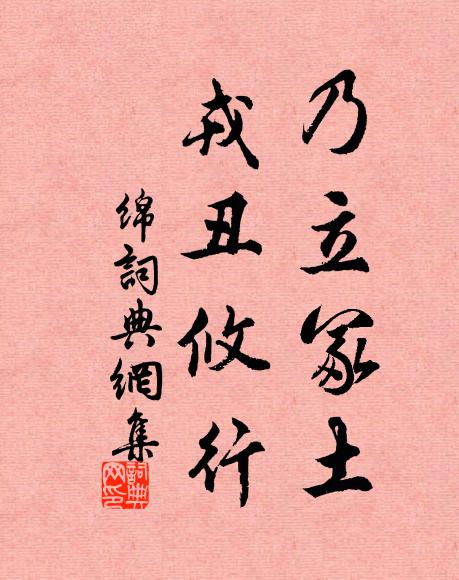 乃立冢土
戎丑攸行
绵詞典網集
詞典网印